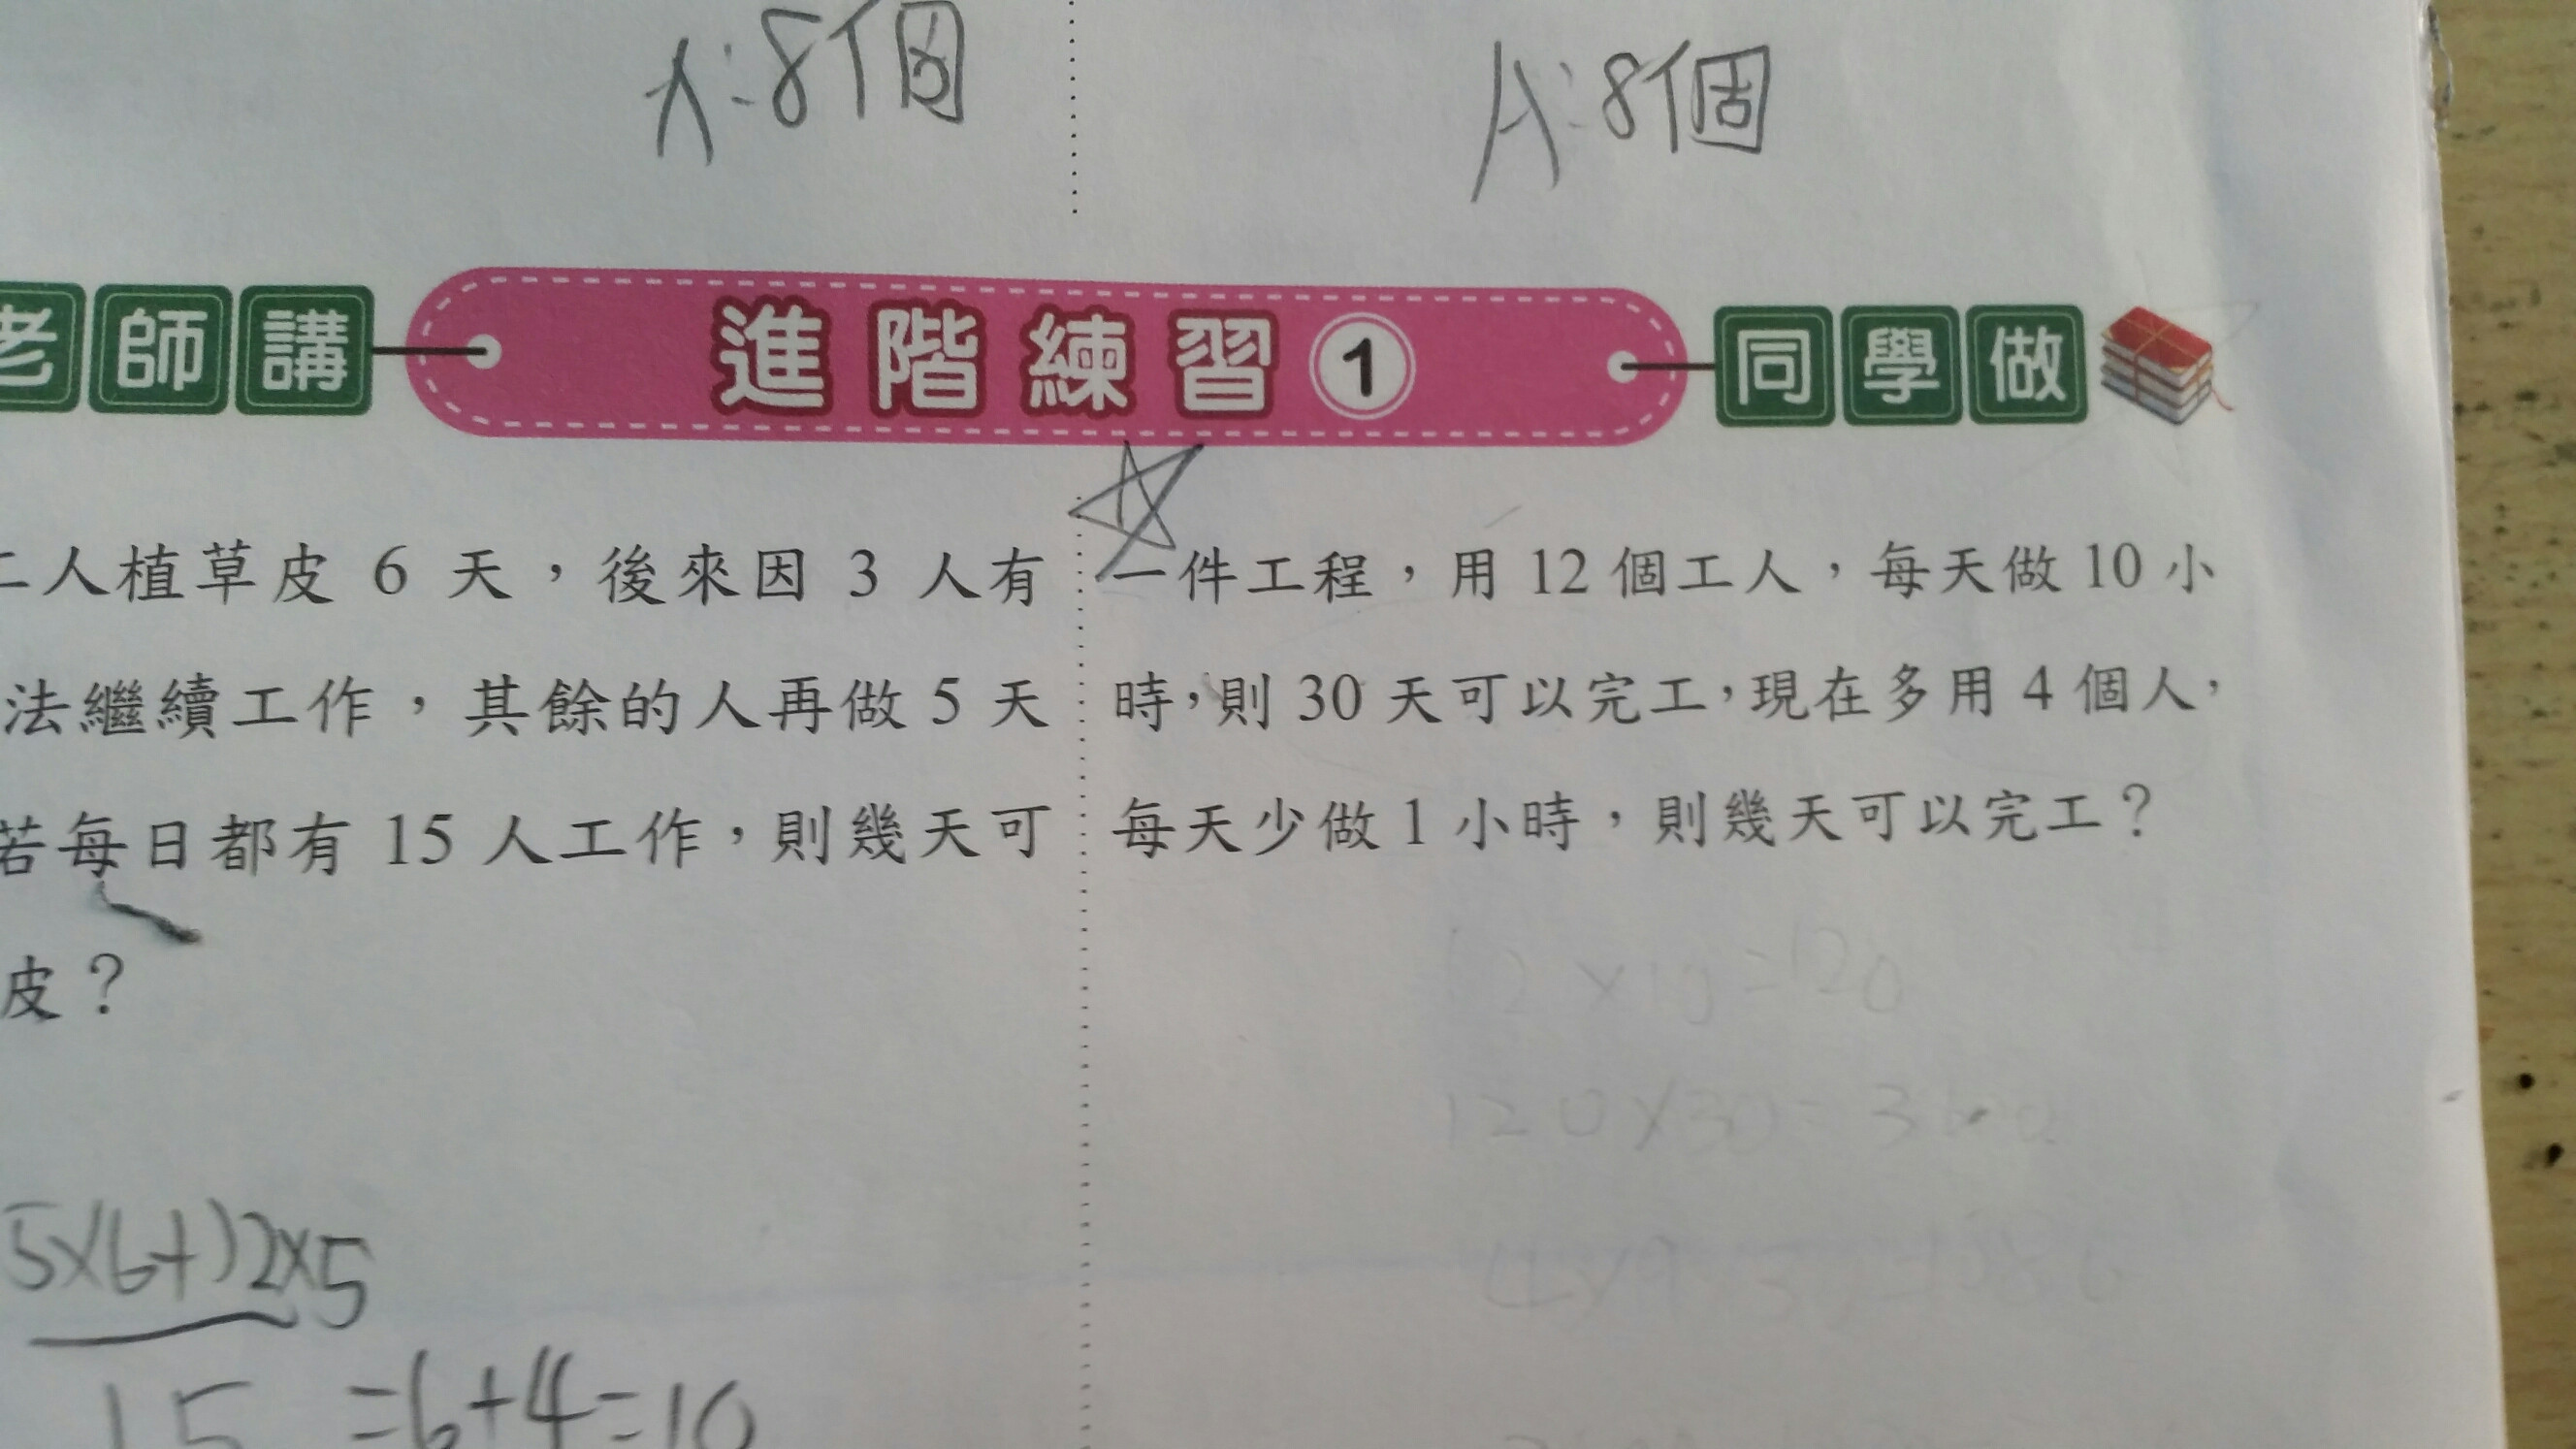 A:8個
A:8個
老師講
進階練習1
同學做
工人植草皮 6 天，後來因 3 人有
法繼續工作，其餘的人再做 5 天
若每日都有 15 人工作，則幾天可
皮？
5×(6+)2×5
15 =6+4=10
一件工程，用 12 個工人，每天做 10 小
時，則 30 天可以完工，現在多用 4 個人，
每天少做 1 小時，則幾天可以完工？
12×10=120
120×30=3600